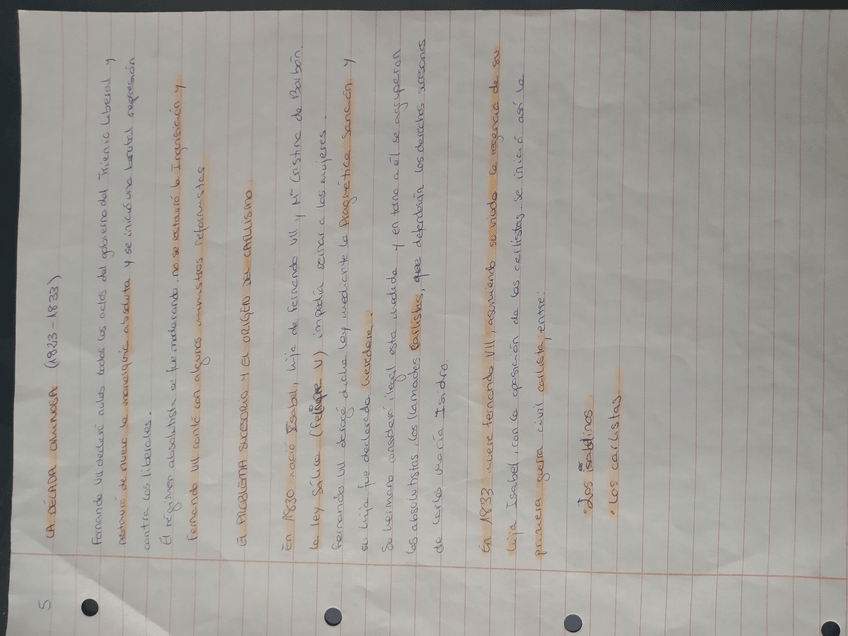 5
LA DÉCADA OMINOSA (1823-1833)
Fernando VII declaró nulos todos los actos del gobierno del Trienio Liberal y
restauró de nuevo la monarquía absoluta y se inició una brutal represión
contra los liberales.
El régimen absolutista se fue moderando. no se restauró la Inquisición y
Fernando VII contó con algunos ministros reformistas
El PROBLEMA SUCESORIO Y EL ORIGEN DEL CARLISMO
En 1830 nació Isabel, hija de Fernando VII y Mª Cristina de Borbón.
la ley Sálica (Felipe V) impedía reinar a las mujeres.
Fernando VII derogó dicha ley mediante la Pragmática Sanción y
su hija fue declarada heredera.
Su hermano consideró ilegal esta medida y en torno a él se agruparon
los absolutistas, los llamados Carlistas, que defenderán los derechos sucesorios
de Carlos María Isidro.
En 1833 muere Fernando VII asumiendo su viuda la regencia de su
hija Isabel, con la oposición de los carlistas. se inició así la
primera guerra civil carlista, entre:
· Los Isabelinos
· Los carlistas